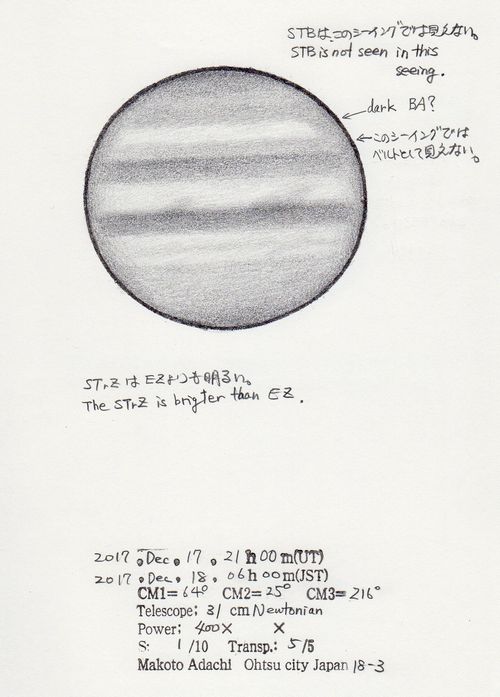 STBは、このシーイングでは見えない。
STB is not seen in this
seeing.
dark BA?
このシーイングでは
ベルトとして見えない。
STrZはEZよりも明るい。
The STrZ is brigter than EZ.
2017.Dec.17.21h00m(UT)
2017.Dec.18.06h00m(JST)
CM1=64° CM2=25° CM3=216°
Telescope: 31 cm Newtonian
Power: 400× ×
S: 1/10 Transp.: 5/5
Makoto Adachi Ohtsu city Japan 18-3